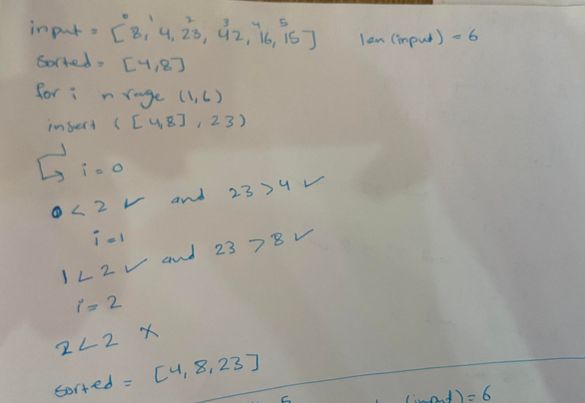 0 1 2 3 4 5
input = [8, 4, 23, 42, 16, 15] len(input) = 6
sorted = [4,8]
for i n range (1,6)
insert ([4,8], 23)
i=0
0<2 ✓ and 23>4 ✓
i=1
1<2 ✓ and 23>8 ✓
i=2
2<2 ×
sorted = [4,8,23]
5 (input)=6